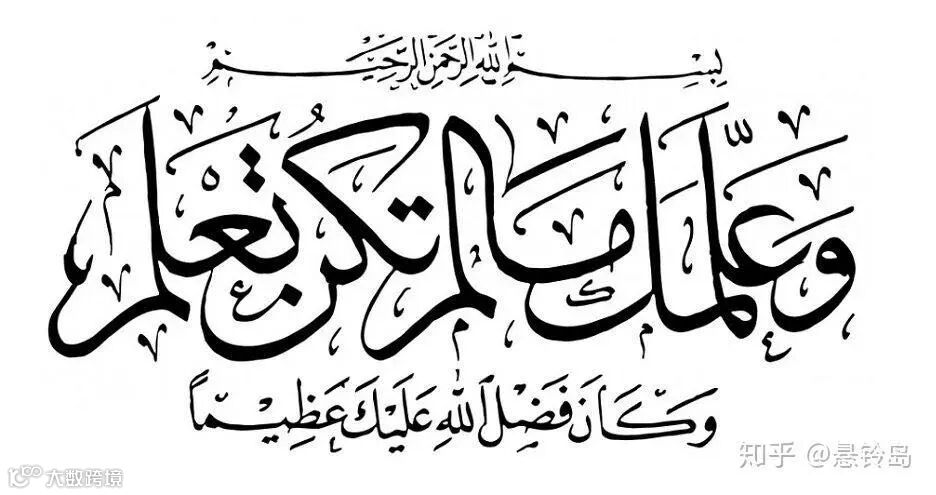 بِسْمِ اللهِ الرَّحْمنِ الرَّحِيْمِ
وَعَلَّمَكَ مَا لَمْ تَكُنْ تَعْلَمُ
وَكَانَ فَضْلُ اللهِ عَلَيْكَ عَظِيْمًا
知乎 @悬铃岛
大数跨境